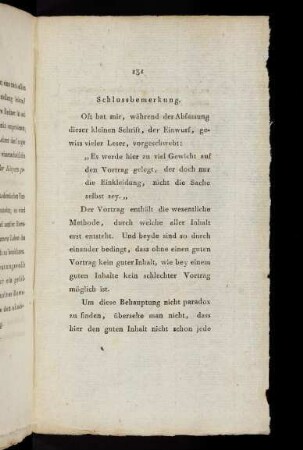 151
Schlussbemerkung.
Oft hat mir, während der Abfassung
dieser kleinen Schrift, der Einwurf, ge-
wiss vieler Leser, vorgeschwebt:
„Es werde hier zu viel Gewicht auf
den Vortrag gelegt, der doch nur
die Einkleidung, nicht die Sache
selbst sey.„
Der Vortrag enthält die wesentliche
Methode, durch welche aller Inhalt
erst entsteht. Und beyde sind so durch
einander bedingt, dass ohne einen guten
Vortrag kein guter Inhalt, wie bey einem
guten Inhalte kein schlechter Vortrag
möglich ist.
Um diese Behauptung nicht paradox
zu finden, übersehe man nicht, dass
hier den guten Inhalt nicht schon jede